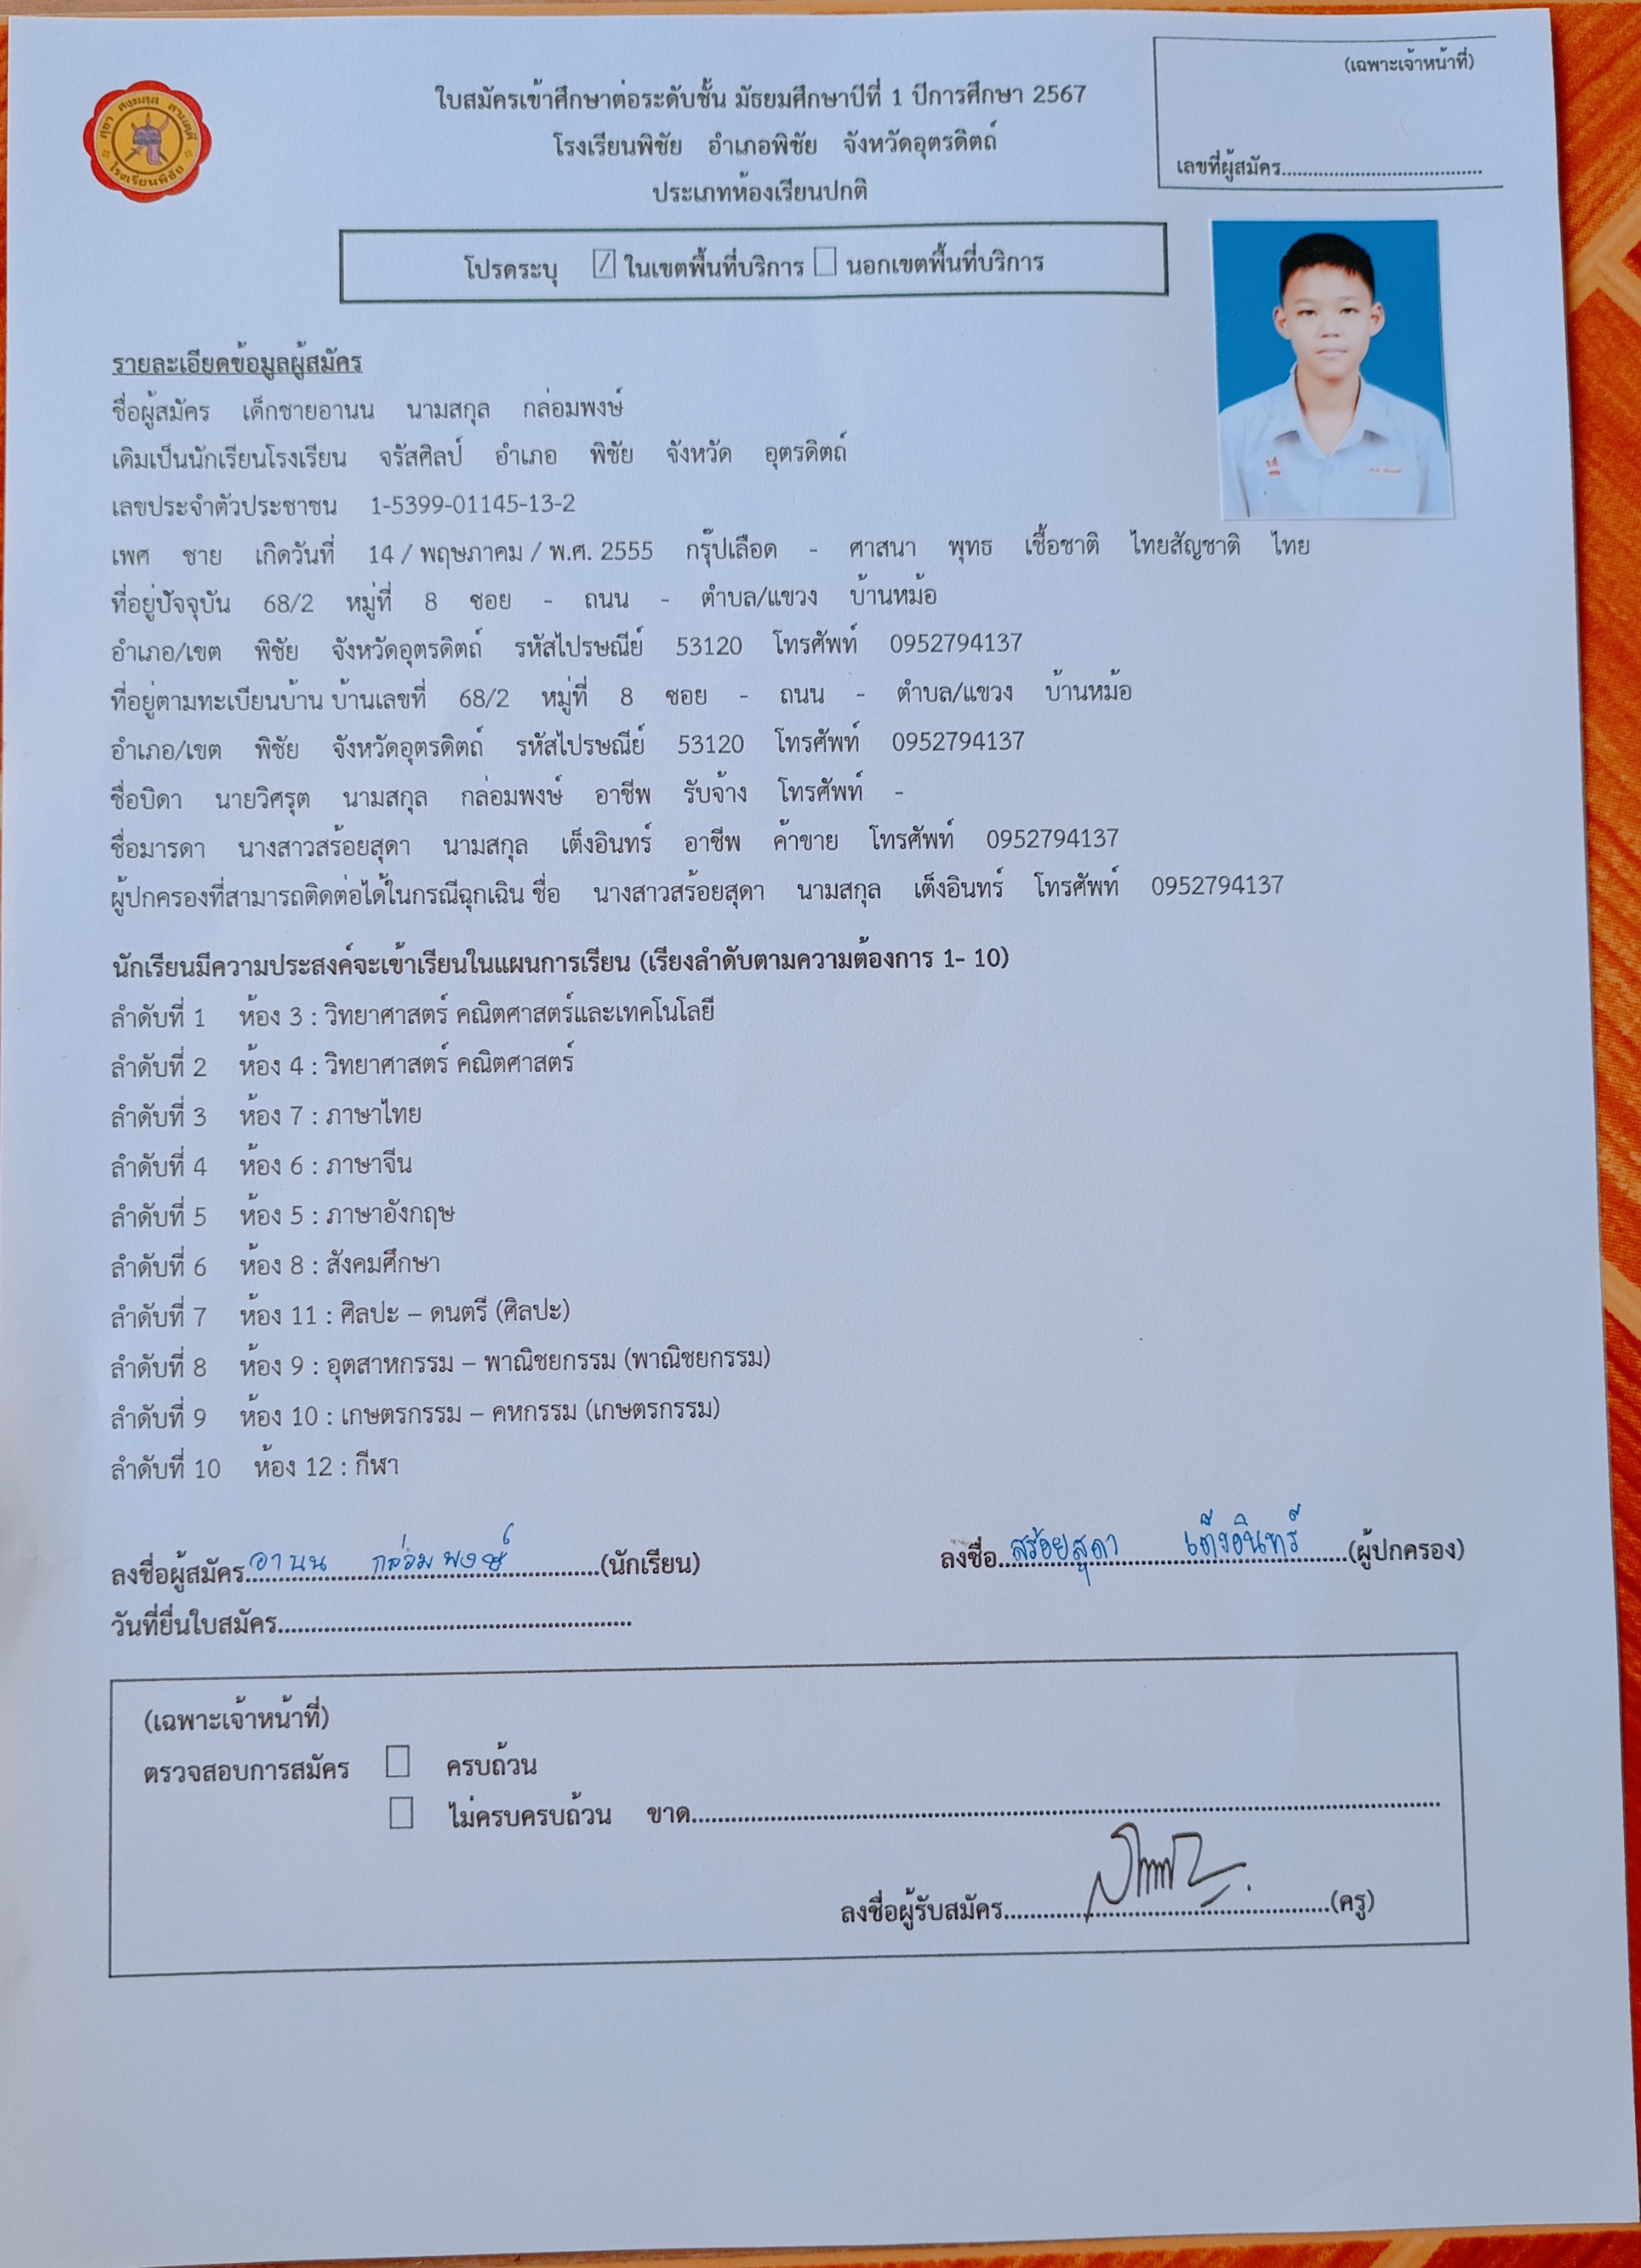 (เฉพาะเจ้าหน้าที่)
เลขที่ผู้สมัคร
โรงเรียนพิชัย
ใบสมัครเข้าศึกษาต่อระดับชั้น มัธยมศึกษาปีที่ 1 ปีการศึกษา 2567
โรงเรียนพิชัย อำเภอพิชัย จังหวัดอุตรดิตถ์
ประเภทห้องเรียนปกติ
โปรดระบุ ในเขตพื้นที่บริการ นอกเขตพื้นที่บริการ
รายละเอียดข้อมูลผู้สมัคร
ชื่อผู้สมัคร เด็กชายอานน นามสกุล กล่อมพงษ์
เดิมเป็นนักเรียนโรงเรียน จรัสศิลป์ อำเภอ พิชัย จังหวัด อุตรดิตถ์
เลขประจำตัวประชาชน 1-5399-01145-13-2
เพศ ชาย เกิดวันที่ 14 / พฤษภาคม / พ.ศ. 2555 กรุ๊ปเลือด - ศาสนา พุทธ เชื้อชาติ ไทยสัญชาติ ไทย
ที่อยู่ปัจจุบัน 68/2 หมู่ที่ 8 ซอย - ถนน - ตำบล/แขวง บ้านหม้อ
อำเภอ/เขต พิชัย จังหวัดอุตรดิตถ์ รหัสไปรษณีย์ 53120 โทรศัพท์ 0952794137
ที่อยู่ตามทะเบียนบ้าน บ้านเลขที่ 68/2 หมู่ที่ 8 ซอย - ถนน - ตำบล/แขวง บ้านหม้อ
อำเภอ/เขต พิชัย จังหวัดอุตรดิตถ์ รหัสไปรษณีย์ 53120 โทรศัพท์ 0952794137
ชื่อบิดา นายวิศรุต นามสกุล กล่อมพงษ์ อาชีพ รับจ้าง โทรศัพท์ -
ชื่อมารดา นางสาวสร้อยสุดา นามสกุล เต็งอินทร์ อาชีพ ค้าขาย โทรศัพท์ 0952794137
ผู้ปกครองที่สามารถติดต่อได้ในกรณีฉุกเฉิน ชื่อ นางสาวสร้อยสุดา นามสกุล เต็งอินทร์ โทรศัพท์ 0952794137
นักเรียนมีความประสงค์จะเข้าเรียนในแผนการเรียน (เรียงลำดับตามความต้องการ 1- 10)
ลำดับที่ 1 ห้อง 3 : วิทยาศาสตร์ คณิตศาสตร์และเทคโนโลยี
ลำดับที่ 2 ห้อง 4 : วิทยาศาสตร์ คณิตศาสตร์
ลำดับที่ 3 ห้อง 7 : ภาษาไทย
ลำดับที่ 4 ห้อง 6 : ภาษาจีน
ลำดับที่ 5 ห้อง 5 : ภาษาอังกฤษ
ลำดับที่ 6 ห้อง 8 : สังคมศึกษา
ลำดับที่ 7 ห้อง 11 : ศิลปะ – ดนตรี (ศิลปะ)
ลำดับที่ 8 ห้อง 9 : อุตสาหกรรม – พาณิชยกรรม (พาณิชยกรรม)
ลำดับที่ 9 ห้อง 10 : เกษตรกรรม – คหกรรม (เกษตรกรรม)
ลำดับที่ 10 ห้อง 12 : กีฬา
ลงชื่อผู้สมัคร อานน กล่อมพงษ์ (นักเรียน) ลงชื่อ สร้อยสุดา เต็งอินทร์ (ผู้ปกครอง)
วันที่ยื่นใบสมัคร
(เฉพาะเจ้าหน้าที่)
ตรวจสอบการสมัคร ครบถ้วน
ไม่ครบครบถ้วน ขาด
ลงชื่อผู้รับสมัคร (ครู)